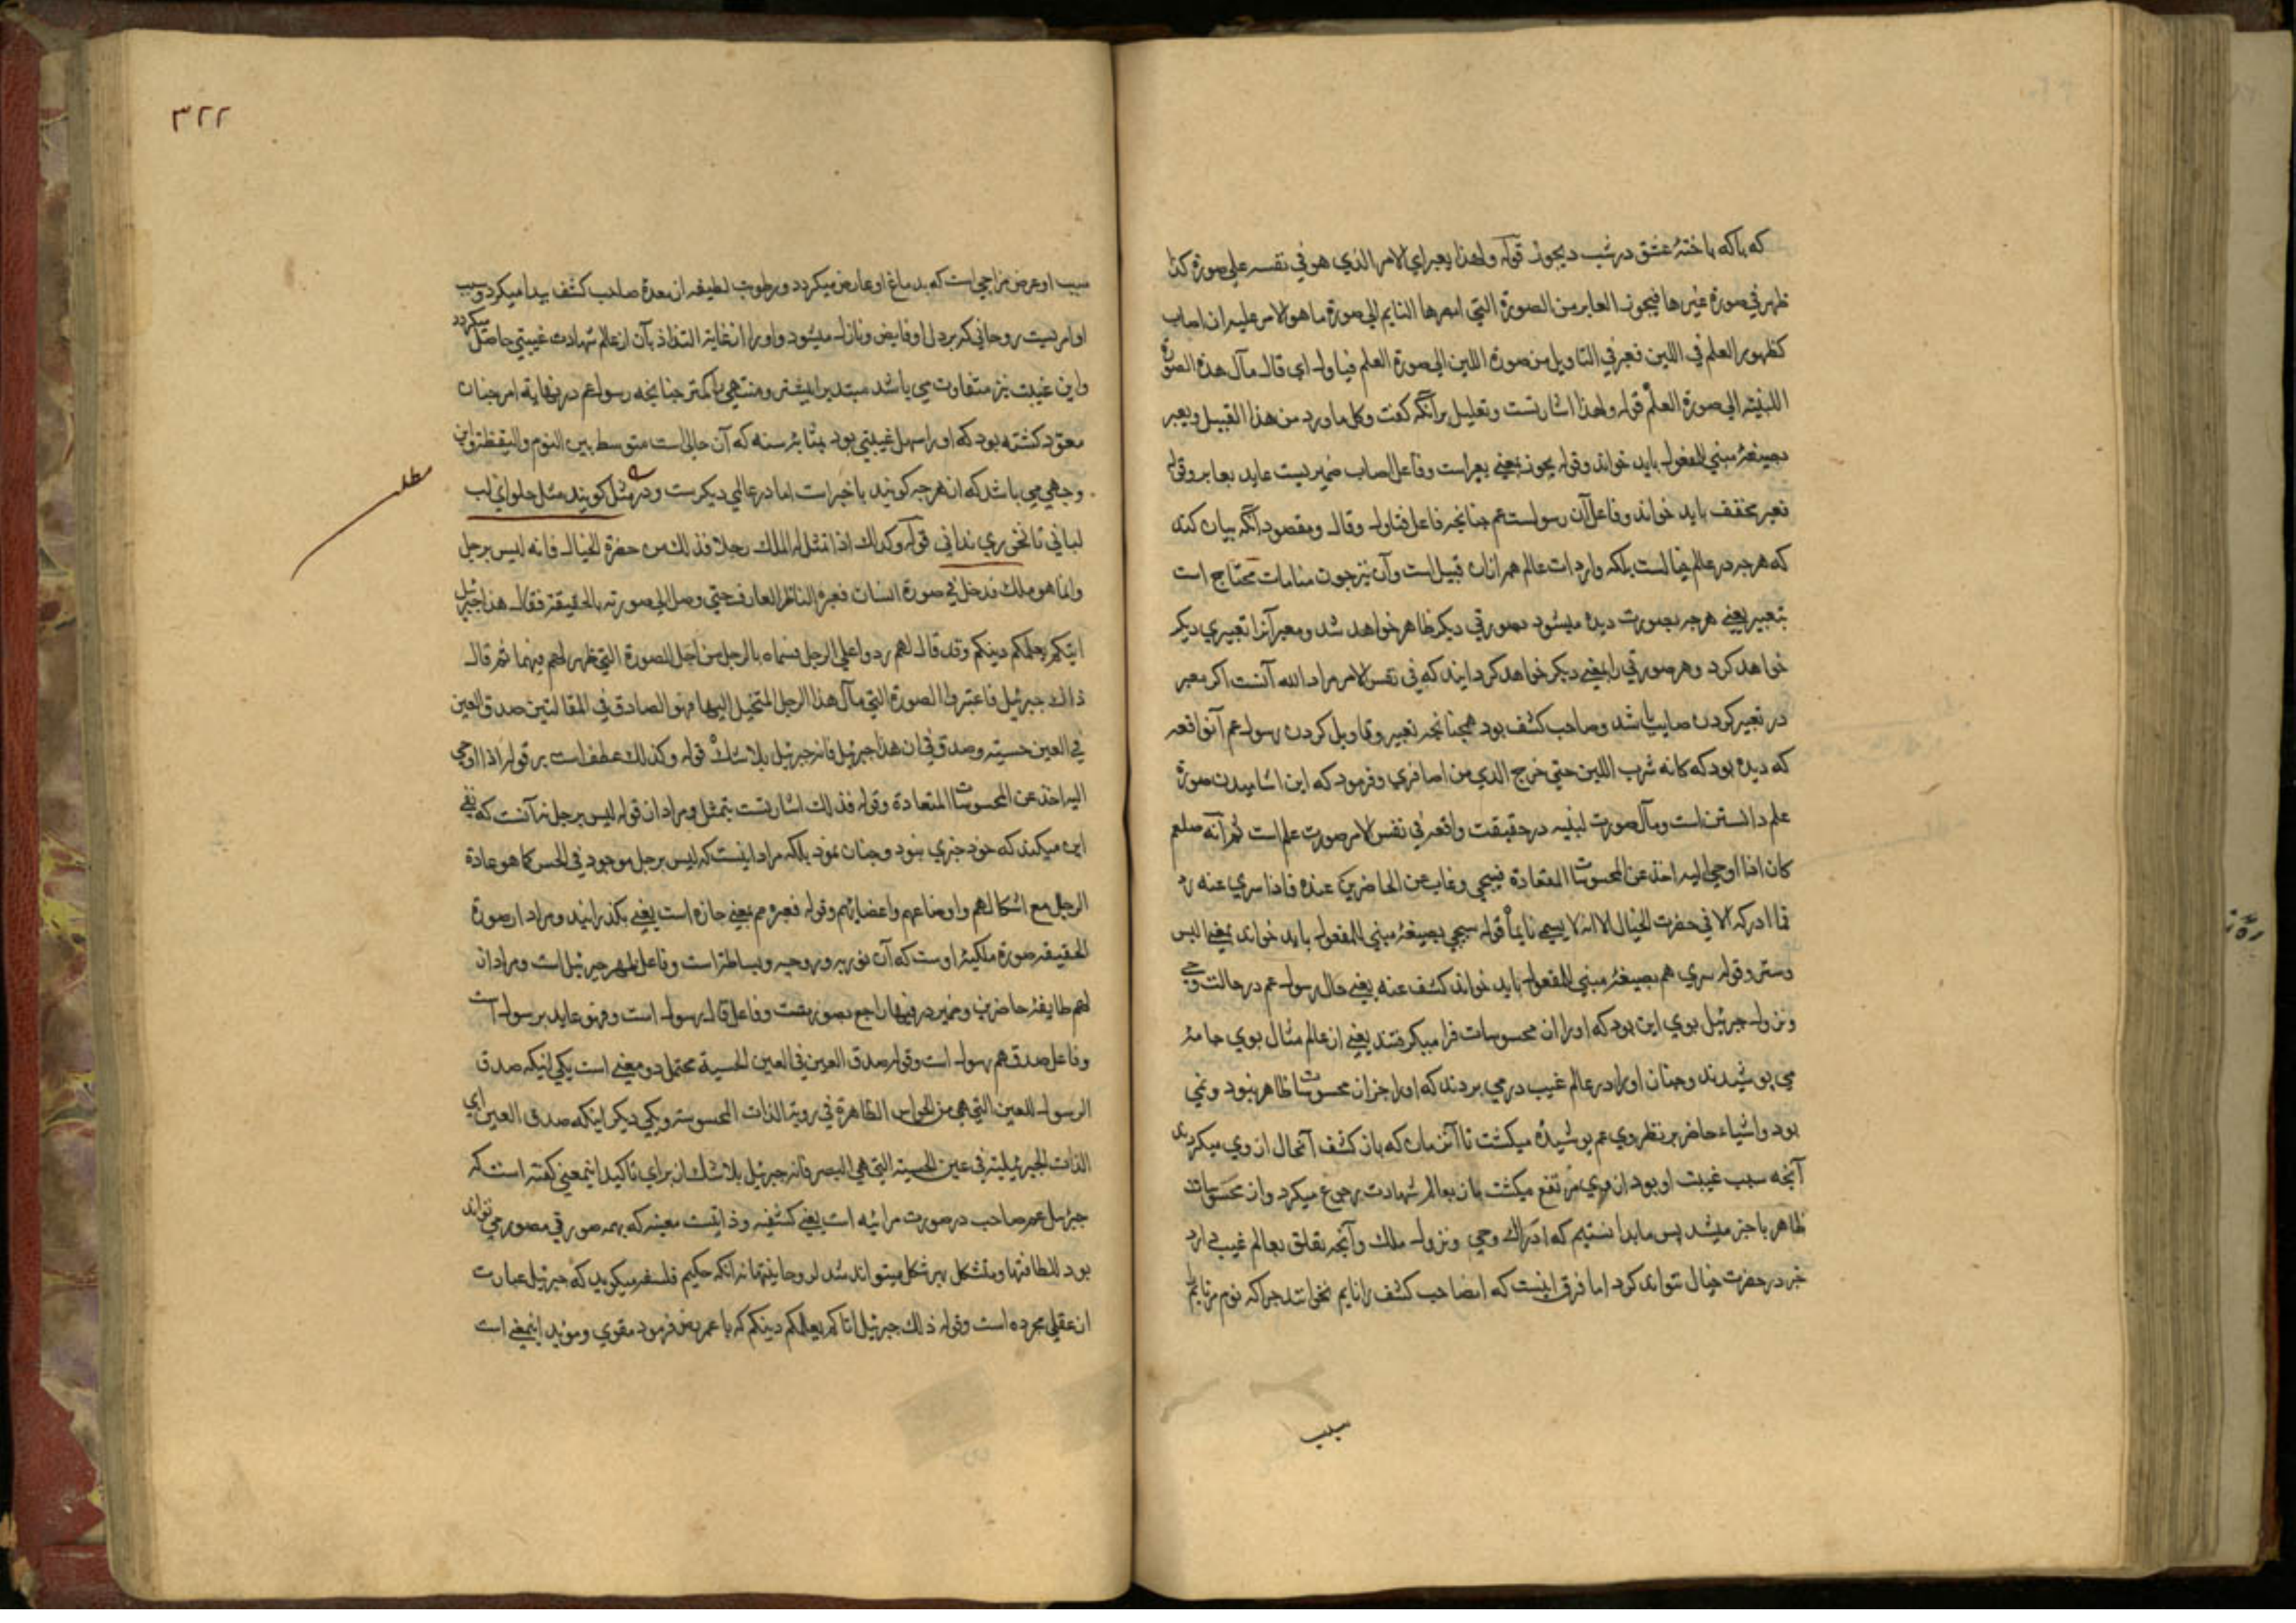 که باکه باخته عشق در شب دیجور قوله ولهذا یعبر ای الامر الذی هو فی نفسه علی صورة کذا
ظهر فی صورة غیرها فیجوز العابر من الصورة التی ابصرها النایم الی صورة ما هو الامر علیه ان اصاب
کظهور العلم فی اللبن فعبر فی التاویل من صورة اللبن الی صورة العلم فتاول ای قال مآل هذه الصورة
اللبنیة الی صورة العلم قوله ولهذا اشارتست وتعلیل برآنکه کفت وکل ما ورد من هذا القبیل ویعبر
بصیغهٔ مبنی للمفعول باید خواند وقوله یجوز بمعنی یعبر است وفاعل اصاب ضمیریست عاید بعابر وقوله
فعبر مخفف باید خواند وفاعل آن رسولست عم جنانجه فاعل فتاول وقال ومقصود آنکه بیان کند
که هرجه در عالم خیالست بلکه واردات عالم هم ازان قبیل است وآن نیز جون منامات محتاج است
بتعبیر یعنی هرجه بصورت دیده میشود بصورتی دیکر ظاهر خواهد شد ومعبر آنرا تعبیری دیکر
خواهد کرد وهر صورتی را بمعنی دیکر خواهد کردانید که فی نفس الامر مراد الله آنست اکر معبر
در تعبیر کردن صایب باشد وصاحب کشف بود همجنانجه تعبیر وتاویل کردن رسول عم آنواقعه
که دیده بود که کانه شرب اللبن حتی خرج الری من اصافری وفرمود که این اشامیدن صورة
علم دانستن است ومآل صورت لبنیه در حقیقت واقعه فی نفس الامر صورت علم است ثم انه صلعم
کان اذا اوحی الیه اخذ عن المحسوسات المعتادة فسجی وغاب عن الحاضرین عنده فاذا سری عنه رد
فما ادرکه الا فی حضرت الخیال الا انه لا یسمی نایماً قوله سجی بصیغهٔ مبنی للمفعول باید خواند بمعنی البس
وستر وقوله سری هم بصیغهٔ مبنی للمفعول باید خواند کشف عنه یعنی حال رسول عم در حالت وحی
ونزول جبرئیل بوی این بود که او را از محسوسات فرا میکرفتند یعنی از عالم مثال بوی جامهٔ
می بوشیدند وجنان او را در عالم غیب در می بردند که او را جز ان محسوسات ظاهر نبود ونمی
بود واشیاء حاضر بر نظر وی عم بوشیده میکشت تا آنزمان که باز کشف آنحال از وی میکردند
آنجه سبب غیبت او بود از وی مرتفع میکشت باز بعالم شهادت رجوع میکرد واز محسوسات
ظاهر با خبر میشد پس ما بدانستیم که ادراک وحی ونزول ملک وآنجه تعلق بعالم غیب دارد
جز در حضرت خیال نتواند کرد اما فرق اینست که این صاحب کشف را نایم نخوانند جراکه نوم مر نایم را
سبب
۳۲۲
سبب او عرض مزاجی است که بدماغ او عارض میکردد ورطوبت لطیفه از معدهٔ صاحب کشف پیدا میکردد وسبب
او امریست روحانی که بر دل او فایض ونازل میشود واو را از غایة التذاذ بآن از عالم شهادت غیبتی حاصل میکردد
واین غیبت نیز متفاوت می باشد مبتدیرا بیشتر ومنتهی را کمتر جنانجه رسول عم در نهایة امر جنان
معتود کشته بود که او را سهل غیبتی بود بمثابهٔ سنه که آن حالی است متوسط بین النوم والیقظة واین
وجهی می باشد که ازهرجه کویند باخبر است اما در عالمی دیکرست ودر مثل کویند مثل حلوای لب
مطلب
لبانی تا نخوری ندانی قوله وکذلک اذا تمثل له الملک رجلا فذلک من حضرة الخیال فانه لیس برجل
وانما هو ملک فدخل فی صورة انسان فعبره الناظر العارف حتی وصل الی صورته الحقیقة فقال هذا جبرئیل
اتیکم یعلمکم دینکم وقد قال لهم ردوا علی الرجل فسماه بالرجل من اجل الصورة التی ظهر لهم فیها ثم قال
ذالک جبرئیل فاعتبر الصورة التی مآل هذا الرجل المتخیل الیها فهو الصادق فی المقالتین صدق العین
فی العین حسیته وصدق فی ان هذا جبرئیل فانه جبرئیل بلا شک قوله وکذلک عطف است بر قوله اذا اوحی
الیه اخذ عن المحسوسات المتعادة وقوله فذلک اشارتست بتمثل ومراد از قوله لیس برجل نه آنست که نفی
این میکند که خود جنری نبود وجنان نمود بلکه مراد اینست که لیس برجل موجود فی الحس کما هو عادة
الرجل مع اشکالهم واوضاعهم واعضایهم وقوله فعبره هم بمعنی جازه است یعنی بکذرانید ومراد از صورة
الحقیقه صورة ملکیهٔ اوست که آن نوریه وروحیه وبساطتست وفاعل ظهر جبرئیل است ومراد از
لهم طایفهٔ حاضرین وضمیر در فیها راجع بصورتست وفاعل قال رسول است وفهو عاید برسول است
وفاعل صدق هم رسول است وقوله صدق العین فی العین الحسیة محتمل دو معنی است یکی اینکه صدق
الرسول للعین التی هی من الحواس الظاهرة فی رویة الذات المحسوسة ویکی دیکر اینکه صدق العین ای
الذات الجبرئیلیة فی عین الحسیة التی هی البصر فانه جبرئیل بلا شک از برای تاکید اینمعنی کفته است که
جبرئیل عم صاحب در صورت مرائیه است یعنی کشفیه وذاتیست معینه که بهمه صورتی مصور می تواند
بود للطافتها ومتشکل بهر شکل میتواند شد لروحانیتها نه آنکه حکیم فلسفه میکوید که جبرئیل عبارت
از عقلی مجرده است وقوله ذلک جبرئیل اتاکم یعلمکم دینکم که با عمر رض فرمود مقوی وموید اینمعنی است